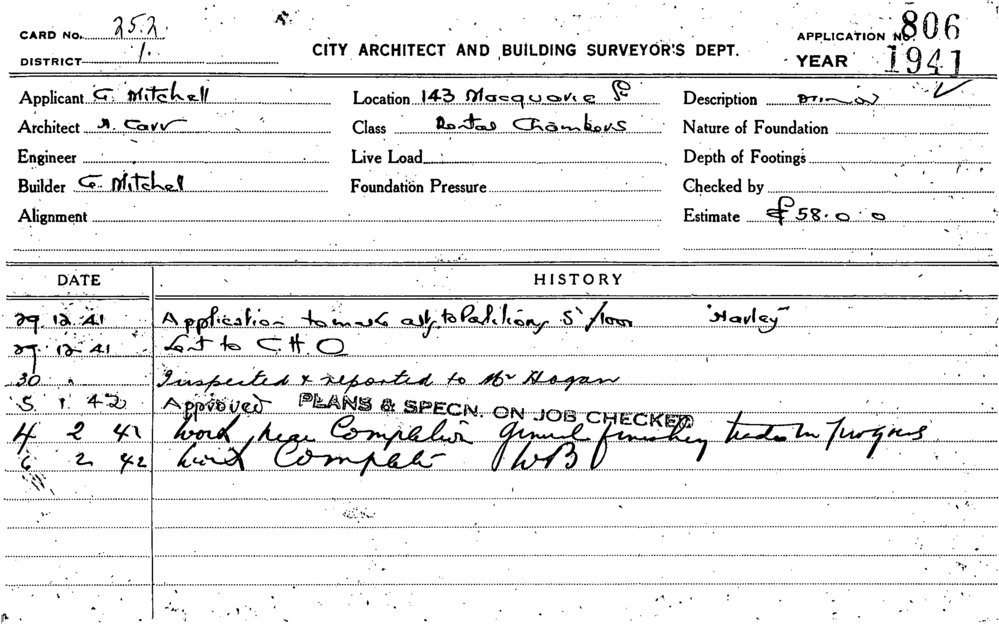 CARD No. 252
APPLICATION No. 806
DISTRICT 1.
CITY ARCHITECT AND BUILDING SURVEYOR'S DEPT.
YEAR 1941
Applicant G. Mitchell
Location 143 Macquarie St
Description
Architect A. Carr
Class Dental Chambers
Nature of Foundation
Engineer
Live Load
Depth of Footings
Builder G. Mitchel
Foundation Pressure
Checked by
Alignment
Estimate £58.0.0
DATE HISTORY
29.12.41 Application to make alts to Partitions 5 /floor "Harley"
29.12.41 Sent to C.H.O
30 " Inspected & reported to Mr Hogan
5.1.42 Approved PLANS & SPECN. ON JOB CHECKED
4 2 42 Work near Completion General finishing trades in progress
6 2 42 Work Complete WB